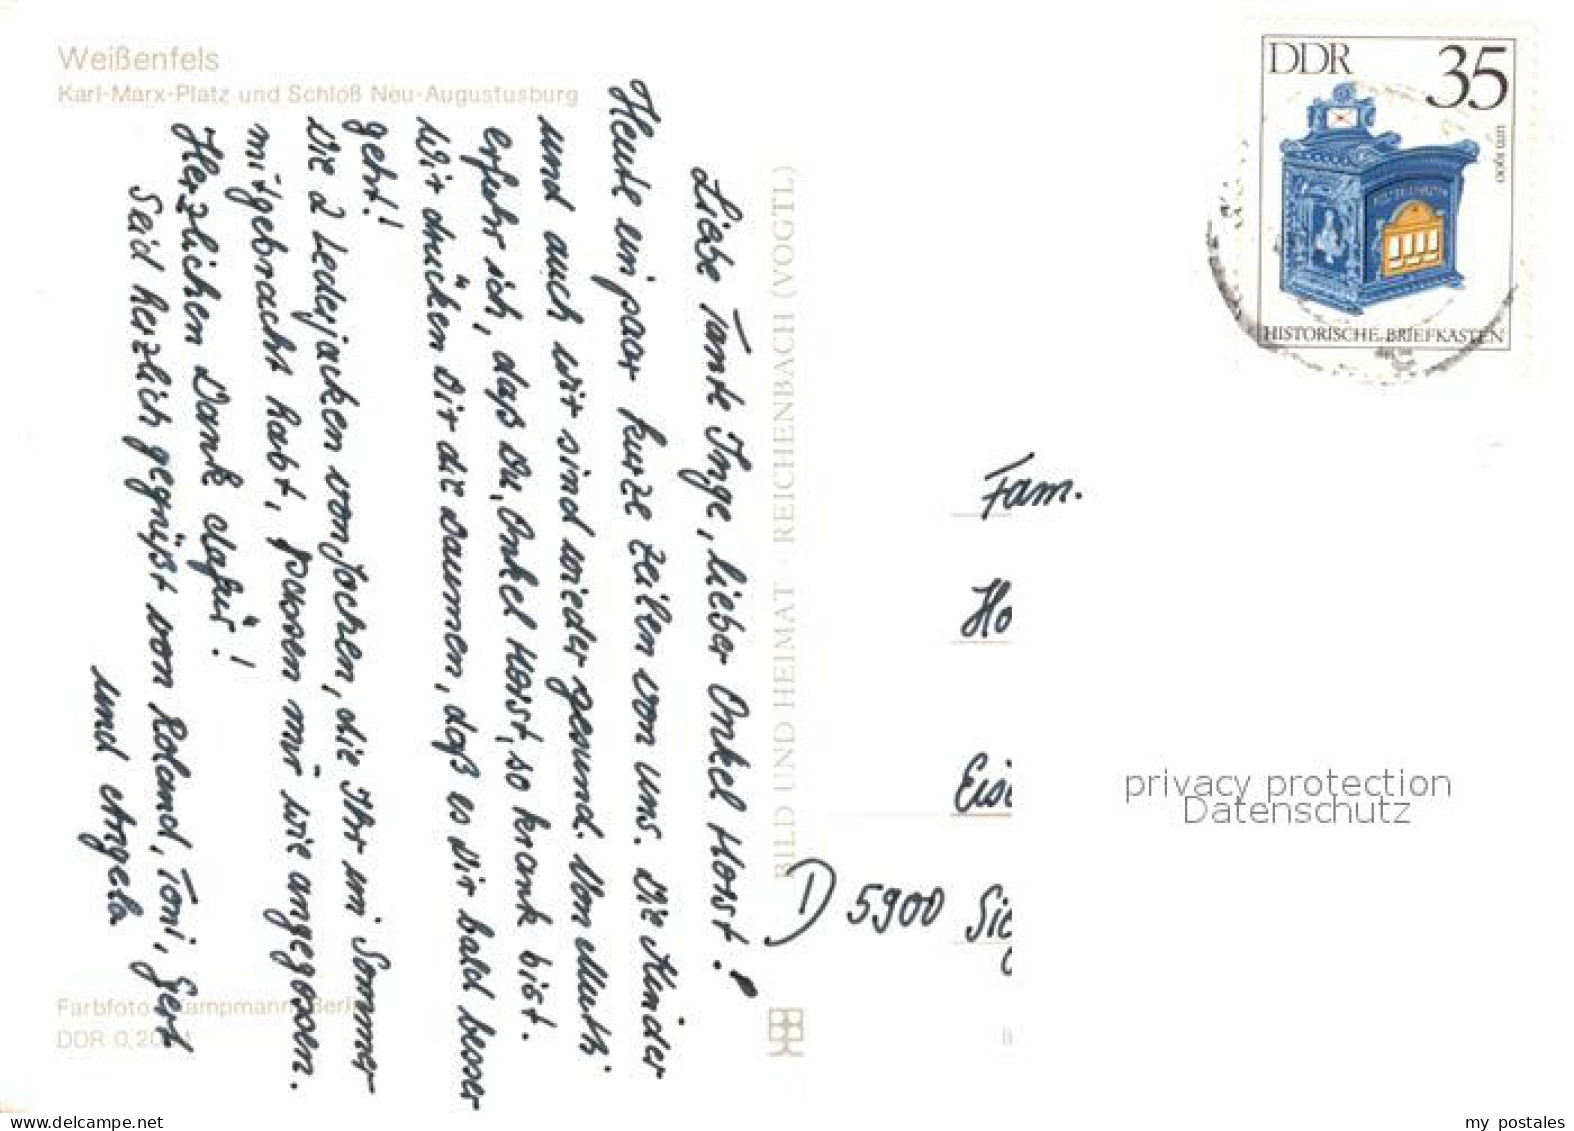 Weißenfels
Karl-Marx-Platz und Schloß Neu-Augustusburg
Liebe Tante Inge, lieber Onkel Horst!
Heute ein paar kurze Zeilen von uns. Die Kinder
und auch wir sind wieder gesund. Von Mutti
erfuhr ich, daß Du, Onkel Horst, so krank bist.
Wir drücken Dir die Daumen, daß es Dir bald besser
geht!
Die 2 Lederjacken von Jochen, die Ihr im Sommer
mitgebracht habt, passen mir wie angegossen.
Herzlichen Dank dafür!
Seid herzlich gegrüßt von Roland, Tomi, Gert
und Angela
Farbfoto: Kampmann, Berlin
DDR 0,20
BILD UND HEIMAT · REICHENBACH (VOGTL)
DDR 35
um 1900
HISTORISCHE BRIEFKÄSTEN
Fam.
Ho
Eise
D 5900 Sieg
privacy protection
Datenschutz
my postales